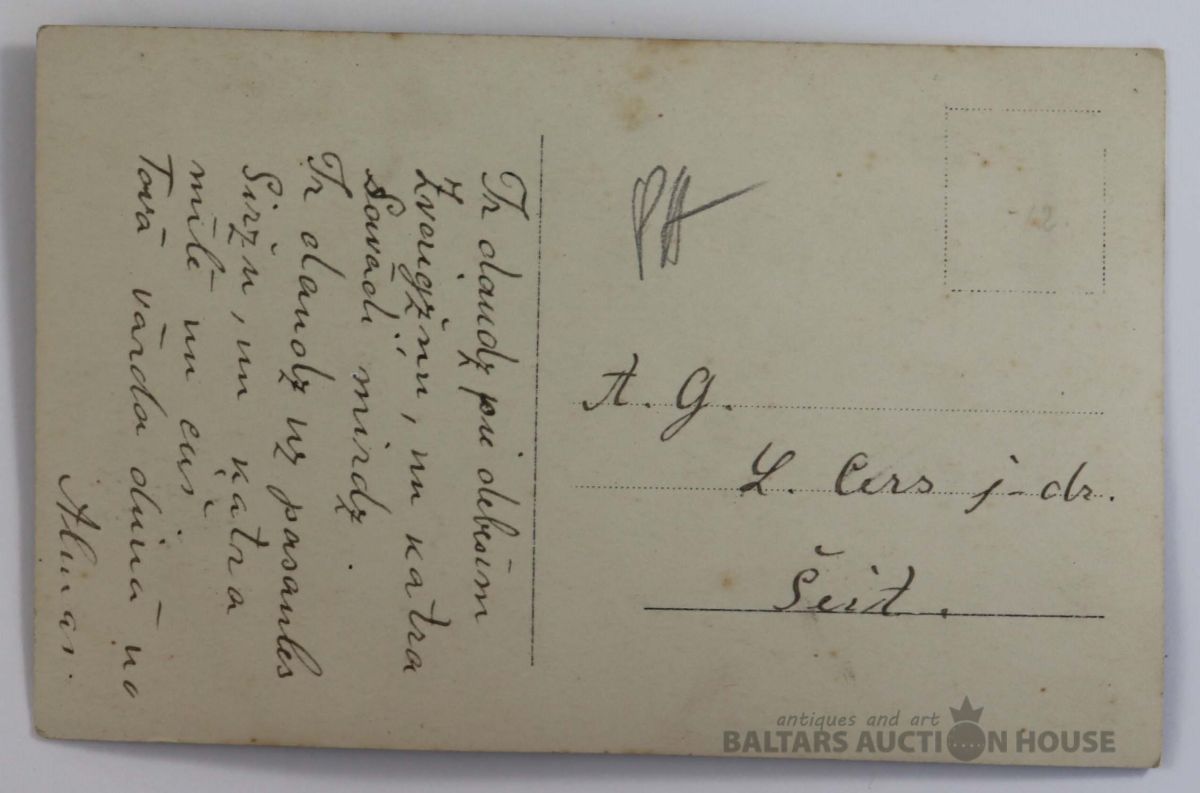 Ir daudz pie debesīm
Zvaigžņu, un katra
Savādi mirdz.
Ir daudz uz pasaules
Siržu, un katra
mīlē un cieš
Tavā vārda dienā no
Almas.
A. G.
L. Cers j-dz.
Šeit.
antiques and art
BALTARS AUCTION HOUSE